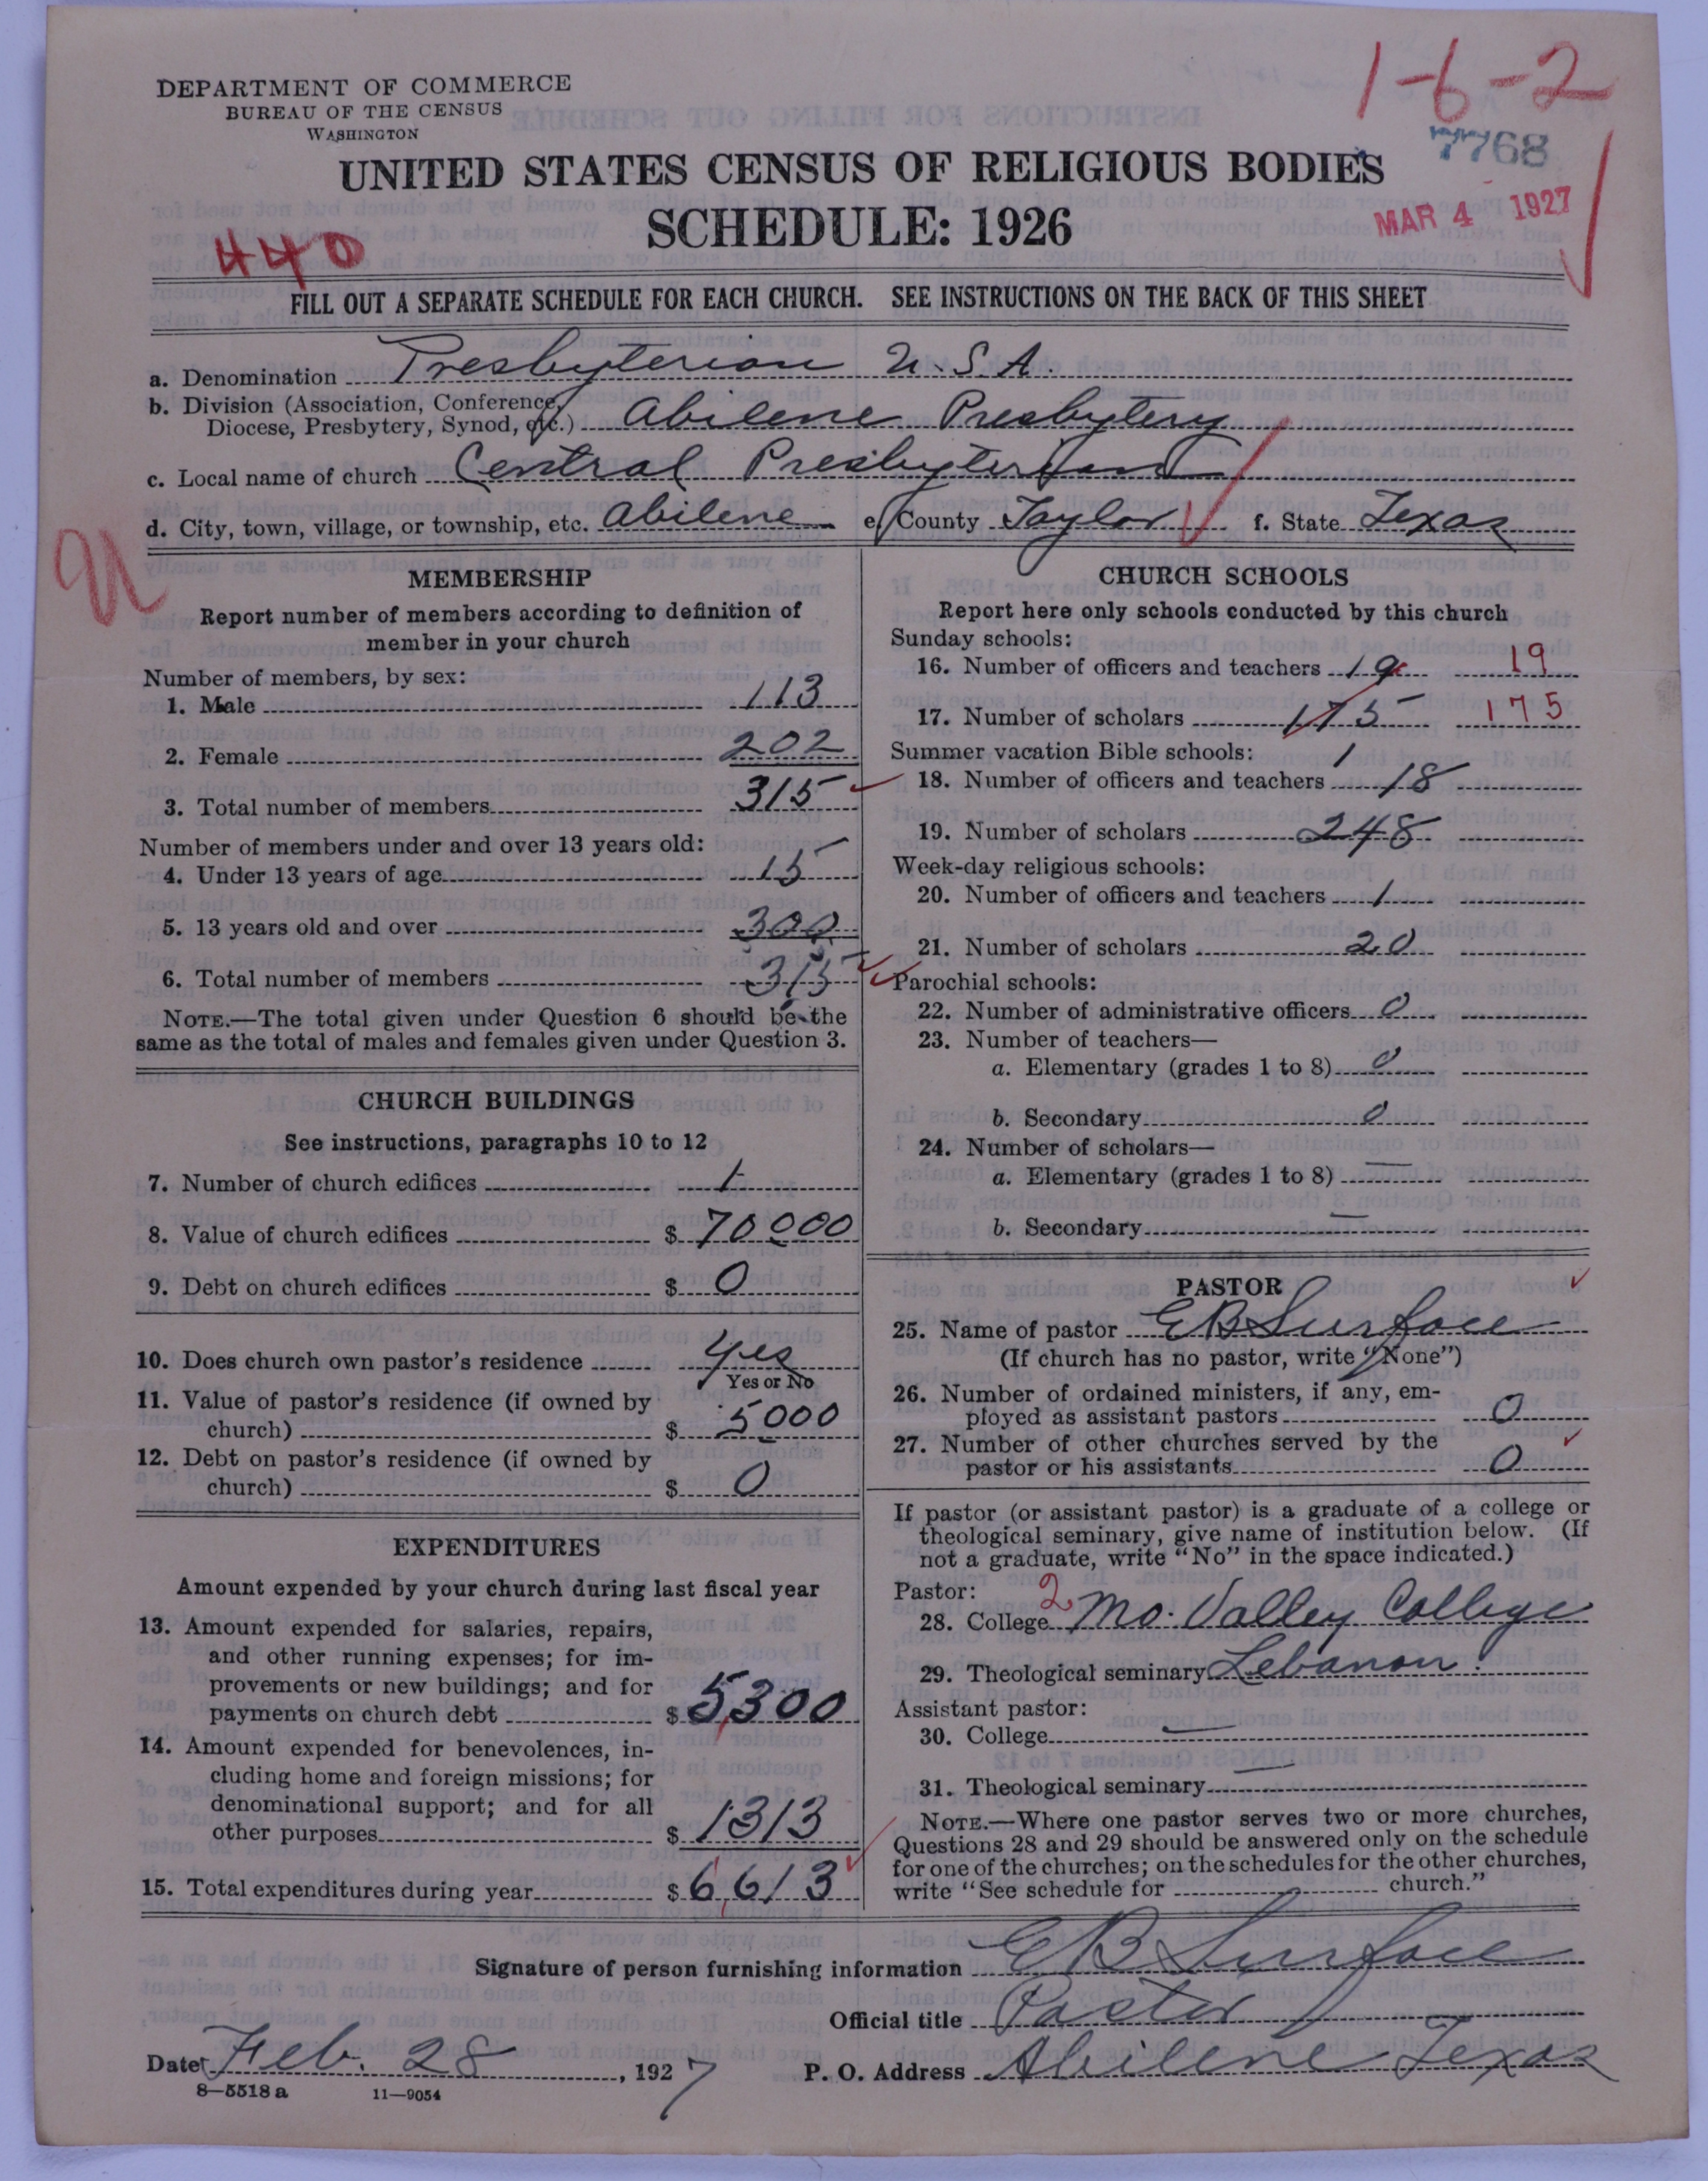 DEPARTMENT OF COMMERCE
BUREAU OF THE CENSUS
WASHINGTON
1-6-2
7768
UNITED STATES CENSUS OF RELIGIOUS BODIES
SCHEDULE: 1926
MAR 4 1927
440
FILL OUT A SEPARATE SCHEDULE FOR EACH CHURCH. SEE INSTRUCTIONS ON THE BACK OF THIS SHEET
a. Denomination Presbyterian U.S.A.
b. Division (Association, Conference,
Diocese, Presbytery, Synod, etc.) Abilene Presbytery
c. Local name of church Central Presbyterian
d. City, town, village, or township, etc. Abilene e. County Taylor f. State Texas
MEMBERSHIP
Report number of members according to definition of
member in your church
Number of members, by sex:
1. Male 113
2. Female 202
3. Total number of members 315
Number of members under and over 13 years old:
4. Under 13 years of age 15
5. 13 years old and over 300
6. Total number of members 315
NOTE.—The total given under Question 6 should be the
same as the total of males and females given under Question 3.
CHURCH BUILDINGS
See instructions, paragraphs 10 to 12
7. Number of church edifices 1
8. Value of church edifices $ 70000
9. Debt on church edifices $ 0
10. Does church own pastor's residence Yes
Yes or No
11. Value of pastor's residence (if owned by
church) $ 5000
12. Debt on pastor's residence (if owned by
church) $ 0
EXPENDITURES
Amount expended by your church during last fiscal year
13. Amount expended for salaries, repairs,
and other running expenses; for im-
provements or new buildings; and for
payments on church debt $ 5,300
14. Amount expended for benevolences, in-
cluding home and foreign missions; for
denominational support; and for all
other purposes $ 1313
15. Total expenditures during year $ 6,613
CHURCH SCHOOLS
Report here only schools conducted by this church
Sunday schools:
16. Number of officers and teachers 19 19
17. Number of scholars 175 175
Summer vacation Bible schools: 1
18. Number of officers and teachers 18
19. Number of scholars 248
Week-day religious schools:
20. Number of officers and teachers 1
21. Number of scholars 20
Parochial schools:
22. Number of administrative officers 0
23. Number of teachers—
a. Elementary (grades 1 to 8) 0
b. Secondary 0
24. Number of scholars—
a. Elementary (grades 1 to 8) —
b. Secondary —
PASTOR
25. Name of pastor E B Surface
(If church has no pastor, write "None")
26. Number of ordained ministers, if any, em-
ployed as assistant pastors 0
27. Number of other churches served by the
pastor or his assistants 0
If pastor (or assistant pastor) is a graduate of a college or
theological seminary, give name of institution below. (If
not a graduate, write "No" in the space indicated.)
Pastor:
28. College 2 Mo. Valley College
29. Theological seminary Lebanon.
Assistant pastor:
30. College —
31. Theological seminary —
NOTE.—Where one pastor serves two or more churches,
Questions 28 and 29 should be answered only on the schedule
for one of the churches; on the schedules for the other churches,
write "See schedule for church."
Signature of person furnishing information E B Surface
Official title Pastor
Date Feb. 28, 1927 P. O. Address Abilene Texas
8—5518 a 11—9054